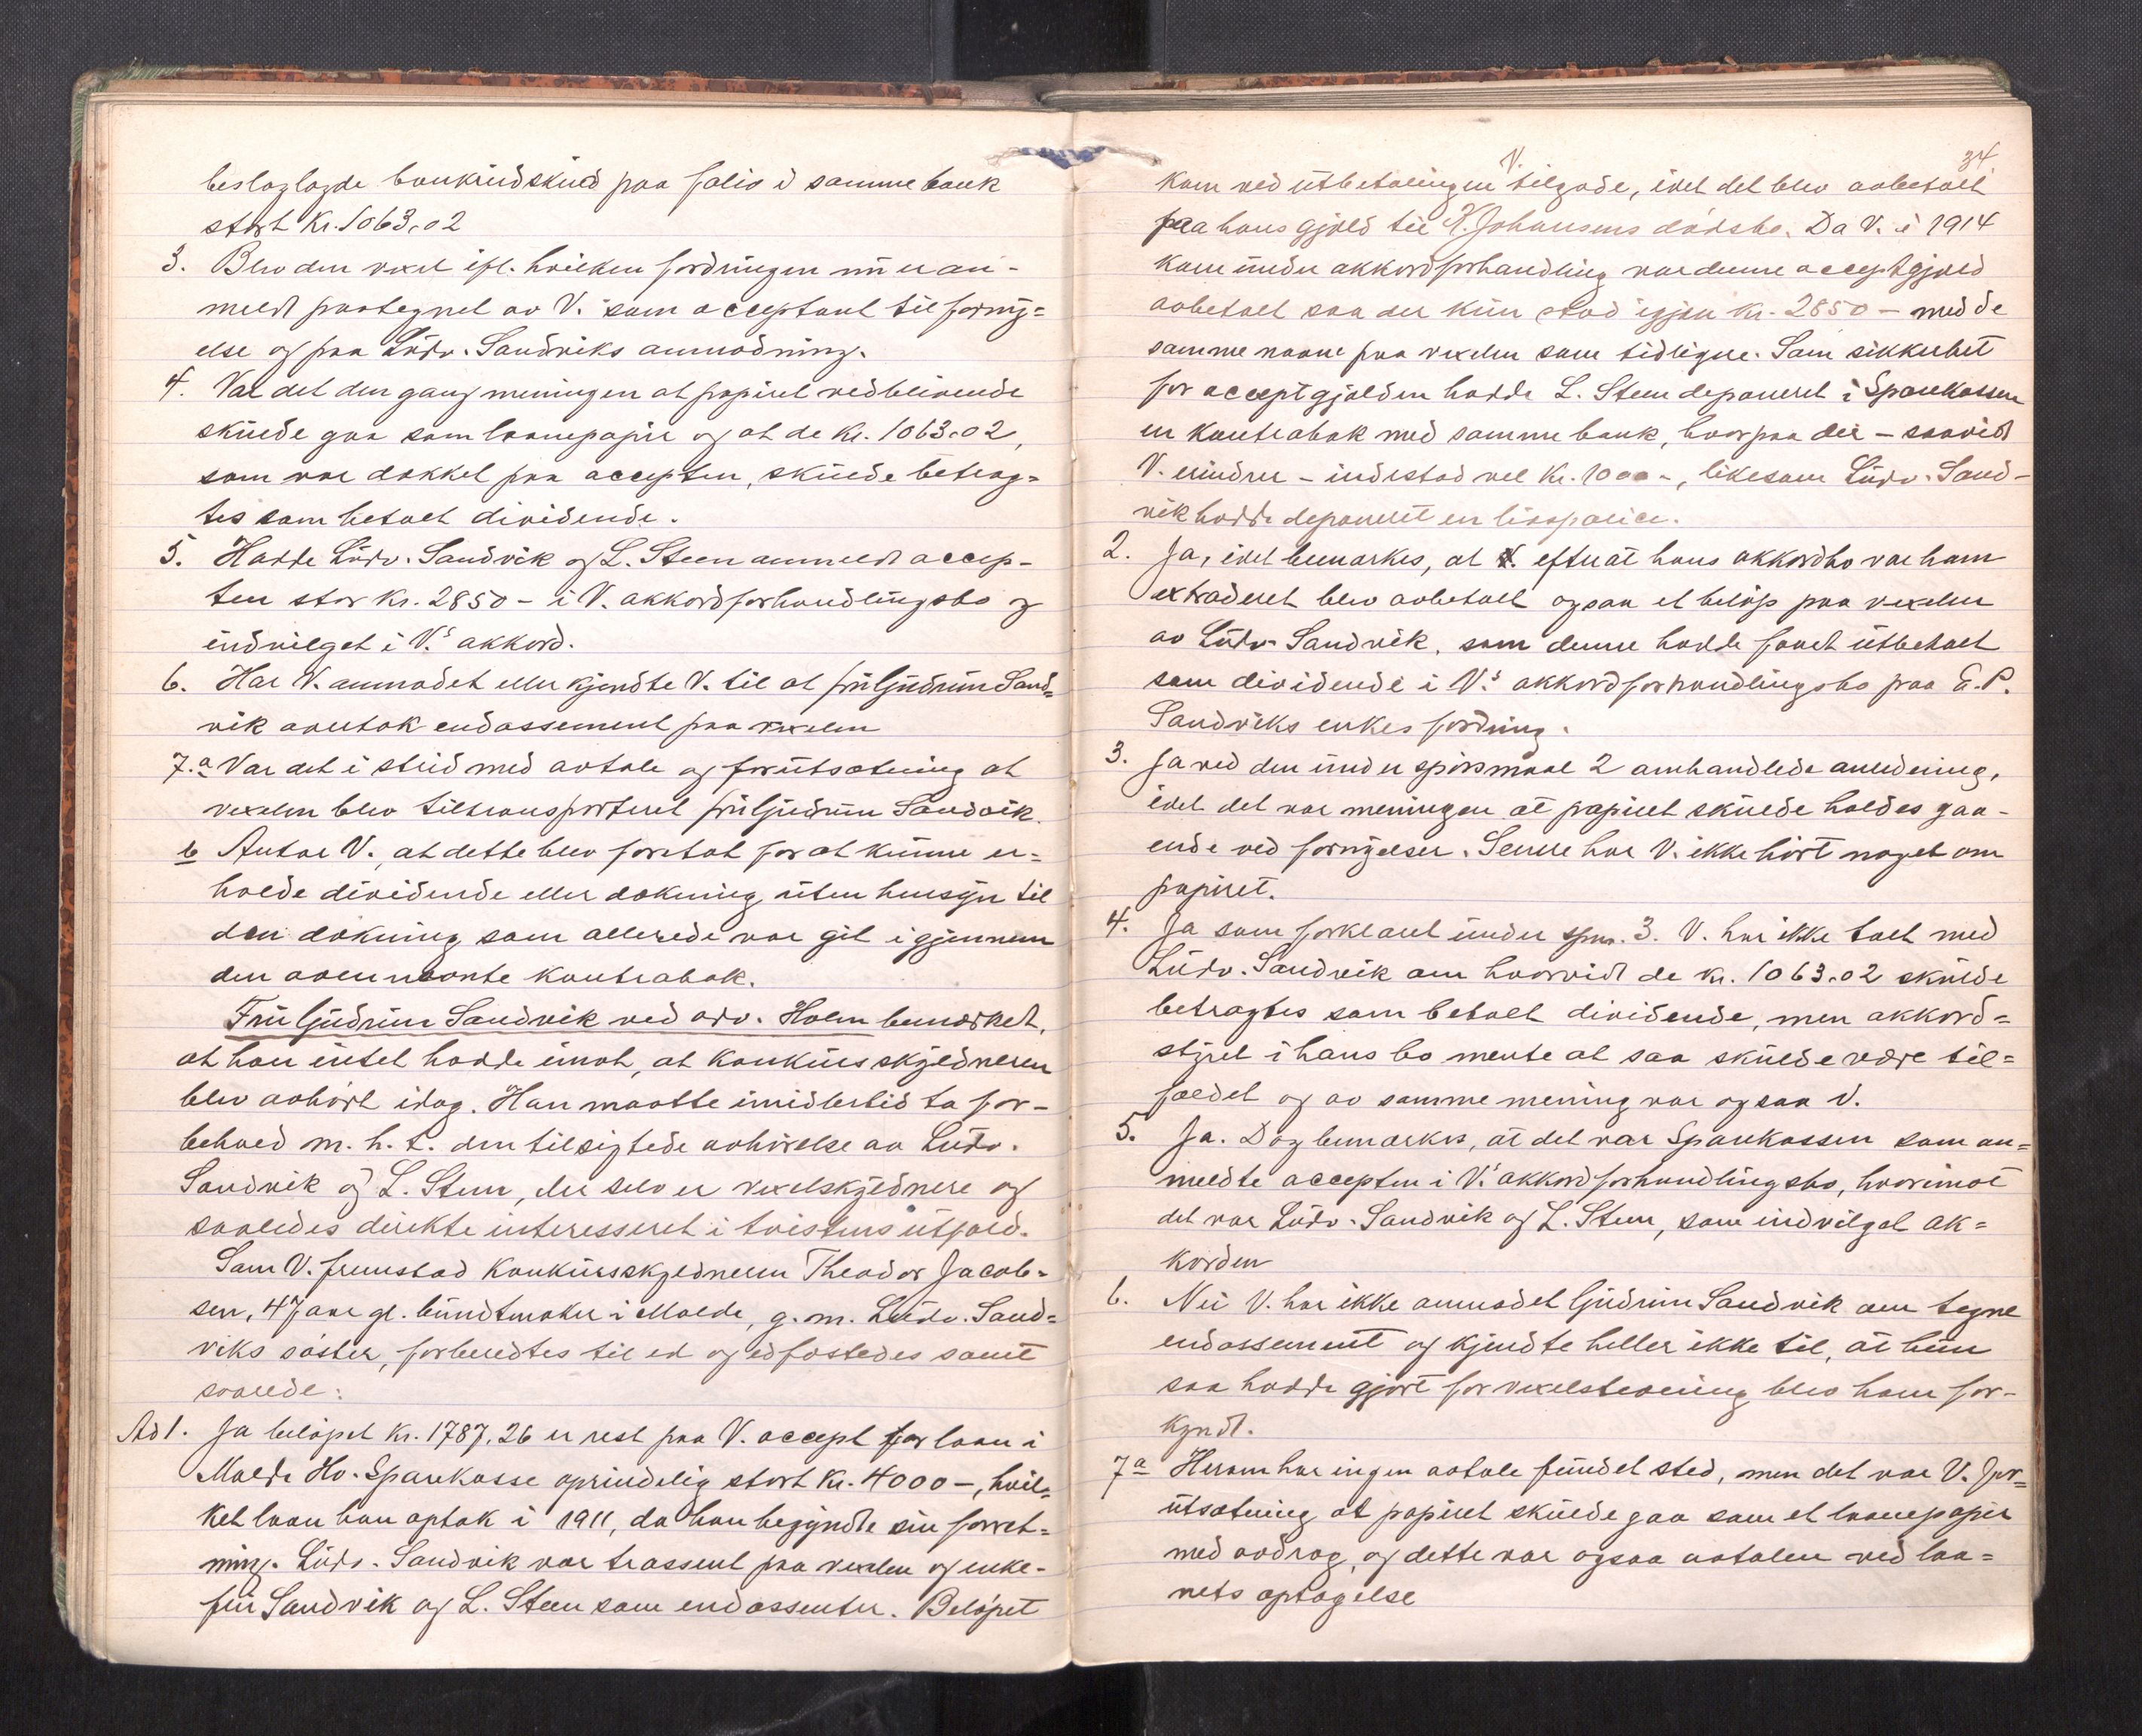 beslaglagde bankindskud paa folio i samme bank
stort Kr. 1063,02
3. Blev den vexel ifl. hvilken fordringen nu er an-
meldt paategnet av V. som acceptant til forny=
else og paa Ludv. Sandviks anmodning.
4. Var det den gang meningen at papiret vedblivende
skulde gaa som laanepapir og at de Kr. 1063.02,
som var dækket paa accepten, skulde betrag=
tes som betalt dividende.
5. Hadde Ludv. Sandvik og L. Steen anmeldt accep-
ten stor Kr. 2850 - i V. akkordforhandlingsbo og
indvilget i V.s akkord.
6. Har V. anmodet eller kjendte V. til at fru Gudrun Sand=
vik overtok endossement paa vexelen
7.a Var det i strid med avtale og forutsætning at
vexelen blev tiltransporteret fru Gudrun Sandvik.
b Antar V., at dette blev foretat for at kunne er=
holde dividende eller dækning uten hensyn til
den dækning som allerede var git igjennem
den ovennævnte kontrabok.
Fru Gudrun Sandvik ved adv. Holm bemærket,
at han intet hadde imot, at konkursskyldneren
blev avhørt idag. Han maatte imidlertid ta for-
behold m. h. t. den tilsigtede avhørelse av Ludv.
Sandvik og L. Steen, der selv er vexelskyldnere og
saaledes direkte interesseret i tvistens utfald.
Som V. fremstod konkursskyldneren Theodor Jacob=
sen, 47 aar gl. bundtmaker i Molde, g. m. Ludv. Sand=
viks søster, forberedtes til ed og edfæstedes samt
svarede:
Ad 1. Ja beløpet Kr. 1787.26 er rest paa V. accept for laan i
Molde Ho. Sparekasse oprindelig stort Kr. 4000 -, hvil=
ket laan han optok i 1911, da han begyndte sin forret=
ning. Ludv. Sandvik var trassent paa vexelen og enke-
fru Sandvik og L. Steen som endossenter. Beløpet
34
V.
kom ved utbetalingen tilgode, idet det blev avbetalt
paa hans gjæld til K. Johansens dødsbo. Da V. i 1914
kom under akkordforhandling var denne acceptgjæld
avbetalt saa der kun stod igjen Kr. 2850 - med de
samme navne paa vexelen som tidligere. Som sikkerhet
for acceptgjælden hadde L. Steen deponeret i Sparekassen
en kontrabok med samme bank, hvorpaa der - saavidt
V. erindrer - indestod vel Kr. 1000 -, likesom Ludv. Sand-
vik hadde deponeret en livspolice.
2. Ja, idet bemærkes, at efterat hans akkordbo var ham
extraderet blev avbetalt ogsaa et beløp paa vexelen
av Ludv. Sandvik, som denne hadde faaet utbetalt
som dividende i V.s akkordforhandlingsbo paa E. P.
Sandviks enkes fordring.
3. Ja ved den under spørsmaal 2 omhandlede anledning,
idet det var meningen at papiret skulde holdes gaa-
ende ved fornyelser. Senere har V. ikke hørt noget om
papiret.
4. Ja som forklaret under spm. 3. V. har ikke talt med
Ludv. Sandvik om hvorvidt de kr. 1063.02 skulde
betragtes som betalt dividende, men akkord=
styret i hans bo mente at saa skulde være til=
fældet og av samme mening var ogsaa V.
5. Ja. Dog bemærkes, at det var Sparekassen som an=
meldte accepten i V.s akkordforhandlingsbo, hvorimot
det var Ludv. Sandvik og L. Steen, som indvilget ak=
korden
6. Nei V. har ikke anmodet Gudrun Sandvik om tegne
endossement og kjendte heller ikke til, at hun
saa hadde gjort før vexelstevning blev ham for-
kyndt.
7a Herom har ingen avtale fundet sted, men det var V. for=
utsætning at papiret skulde gaa som et laanepapir
med avdrag, og dette var ogsaa avtalen ved laa=
nets optagelse